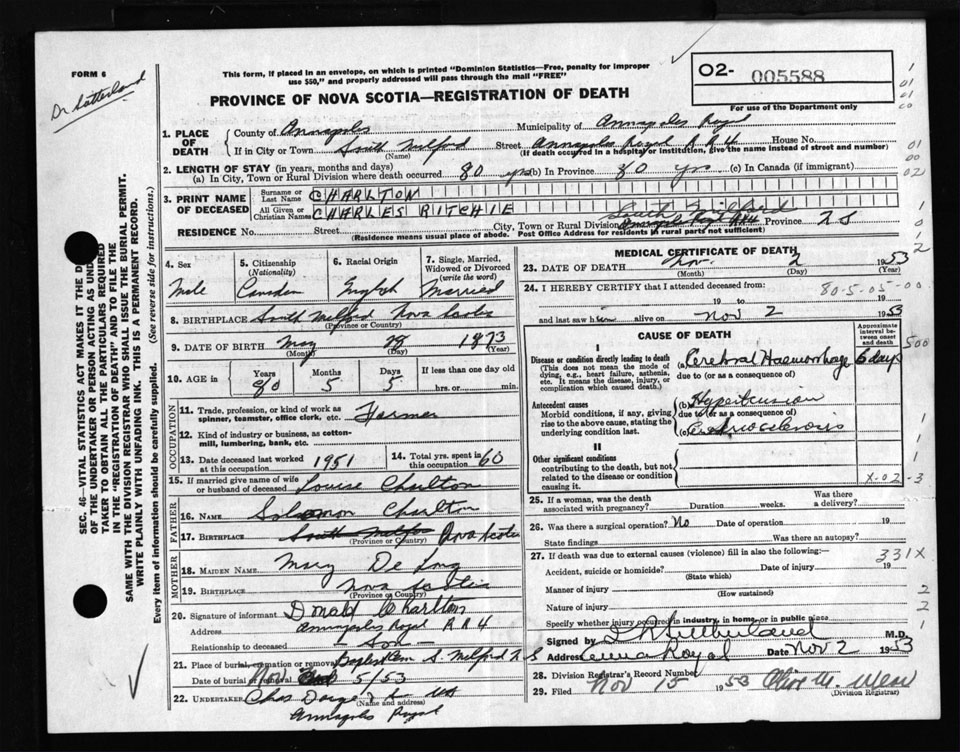 FORM 6
Dr Sutterland
This form, if placed in an envelope, on which is printed "Dominion Statistics—Free, penalty for improper
use $50," and properly addressed will pass through the mail "FREE"
O2- 005588
For use of the Department only
PROVINCE OF NOVA SCOTIA—REGISTRATION OF DEATH
1. PLACE OF DEATH
County of Annapolis Municipality of Annapolis Royal
If in City or Town South Milford Street Annapolis Royal R R 4 House No.
(Name) (If death occurred in a hospital or institution, give the name instead of street and number)
2. LENGTH OF STAY (in years, months and days)
(a) In City, Town or Rural Division where death occurred 80 yrs (b) In Province 80 yrs (c) In Canada (if immigrant)
3. PRINT NAME OF DECEASED
Surname or Last Name CHARLTON
All Given or Christian Names CHARLES RITCHIE
South Milford
RESIDENCE No. Street City, Town or Rural Division Annapolis Royal RR4 Province N S
(Residence means usual place of abode. Post Office Address for residents in rural parts not sufficient)
4. Sex Male
5. Citizenship (Nationality) Canadian
6. Racial Origin English
7. Single, Married, Widowed or Divorced (write the word) Married
8. BIRTHPLACE South Milford Nova Scotia
(Province or Country)
9. DATE OF BIRTH May 28 1873
(Month) (Day) (Year)
10. AGE in Years 80 Months 5 Days 5 If less than one day old
hrs. or min.
OCCUPATION
11. Trade, profession, or kind of work as spinner, teamster, office clerk, etc. Farmer
12. Kind of industry or business, as cotton-mill, lumbering, bank, etc.
13. Date deceased last worked at this occupation 1951
14. Total yrs. spent in this occupation 60
15. If married give name of wife or husband of deceased Louise Charlton
FATHER
16. NAME Solomon Charlton
17. BIRTHPLACE South Milford Nova Scotia
(Province or Country)
MOTHER
18. MAIDEN NAME Mary De Long
19. BIRTHPLACE Nova Scotia
(Province or Country)
20. Signature of informant Donald Charlton
Address Annapolis Royal R R 4
Relationship to deceased Son
21. Place of burial, cremation or removal Baptist Cem S. Milford N S
Date of burial or removal Nov 5/53
22. UNDERTAKER Chas
(Name and address)
Annapolis Royal
MEDICAL CERTIFICATE OF DEATH
23. DATE OF DEATH Nov. 2 1953
(Month) (Day) (Year)
24. I HEREBY CERTIFY that I attended deceased from: 80-5-05-00
19 to 19
and last saw him alive on Nov 2 1953
CAUSE OF DEATH
Approximate interval between onset and death
I
Disease or condition directly leading to death
(This does not mean the mode of dying, e.g., heart failure, asthenia, etc. It means the disease, injury, or complication which caused death.)
(a) Cerebral Haemorrhage 6 days
due to (or as a consequence of)
Antecedent causes
Morbid conditions, if any, giving rise to the above cause, stating the underlying condition last.
(b) Hypertension
due to (or as a consequence of)
(c) Arteriosclerosis
II
Other significant conditions
contributing to the death, but not related to the disease or condition causing it.
X-02-3
25. If a woman, was the death associated with pregnancy? Duration weeks. Was there a delivery?
26. Was there a surgical operation? No Date of operation 19
State findings Was there an autopsy?
27. If death was due to external causes (violence) fill in also the following:— 331X
Accident, suicide or homicide? Date of injury 19
(State which)
Manner of injury
(How sustained)
Nature of injury
Specify whether injury occurred in industry, in home, or in public place
Signed by M.D.
Address Anna Royal Date Nov 2 1953
28. Division Registrar's Record Number
29. Filed Nov 15 1953 Olive M.
(Division Registrar)
SEC. 46—VITAL STATISTICS ACT MAKES IT THE
OF THE UNDERTAKER OR PERSON ACTING AS
TAKER TO OBTAIN ALL THE PARTICULARS REQUIRED
IN THE "REGISTRATION OF DEATH" AND TO FILE THE
SAME WITH THE DIVISION REGISTRAR WHO SHALL ISSUE THE BURIAL PERMIT.
WRITE PLAINLY WITH UNFADING INK. THIS IS A PERMANENT RECORD.
Every item of information should be carefully supplied. (See reverse side for instructions.)